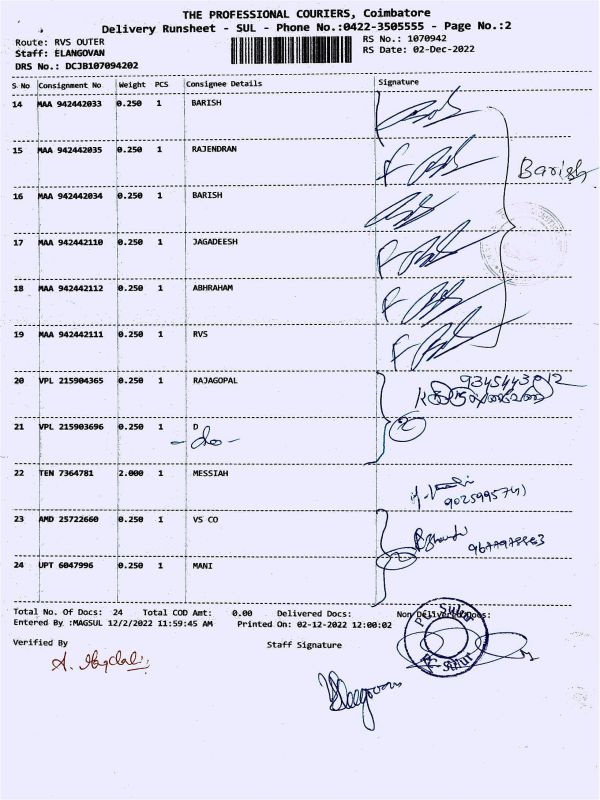 THE PROFESSIONAL COURIERS, Coimbatore
Delivery Runsheet - SUL - Phone No.:0422-3505555 - Page No.:2
Route: RVS OUTER
RS No.: 1070942
Staff: ELANGOVAN
RS Date: 02-Dec-2022
DRS No.: DCJB107094202
S No Consignment No Weight PCS Consignee Details Signature
14 MAA 942442033 0.250 1 BARISH
15 MAA 942442035 0.250 1 RAJENDRAN
Barish
16 MAA 942442034 0.250 1 BARISH
17 MAA 942442110 0.250 1 JAGADEESH
18 MAA 942442112 0.250 1 ABHRAHAM
19 MAA 942442111 0.250 1 RVS
20 VPL 215904365 0.250 1 RAJAGOPAL
21 VPL 215903696 0.250 1 D
-do-
2
22 TEN 7364781 2.000 1 MESSIAH
23 AMD 25722660 0.250 1 VS CO
24 UPT 6047996 0.250 1 MANI
Total No. Of Docs: 24 Total COD Amt: 0.00 Delivered Docs: Non Delivered Docs:
Entered By :MAGSUL 12/2/2022 11:59:45 AM Printed On: 02-12-2022 12:00:02
Verified By
Staff Signature
Elangovan